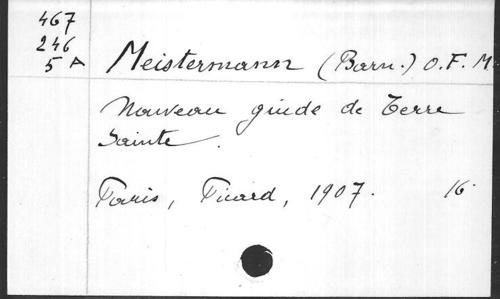 467
246
5 A
Meistermann (Barn.) O.F.M.
Nouveau guide de Terre
Sainte.
Paris, Picard, 1907. 16°